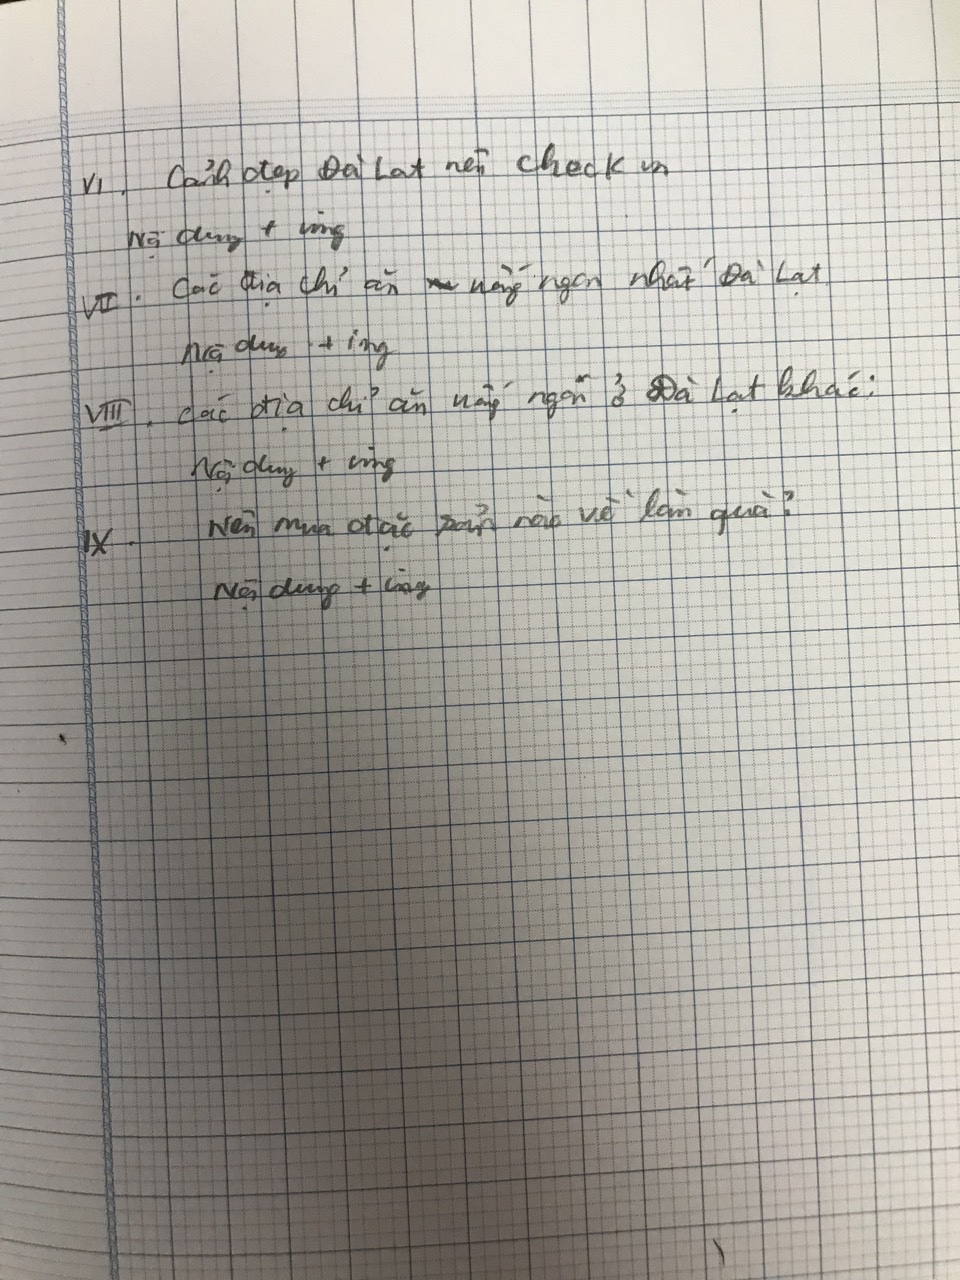 VI. Cảnh đẹp Đà Lạt nên check in
Nội dung + ing
VII. Các địa chỉ ăn uống ngon nhất Đà Lạt
Nội dung + ing
VIII. Các địa chỉ ăn uống ngon ở Đà Lạt khác:
Nội dung + ing
IX. Nên mua đặc sản nào về làm quà?
Nội dung + ing